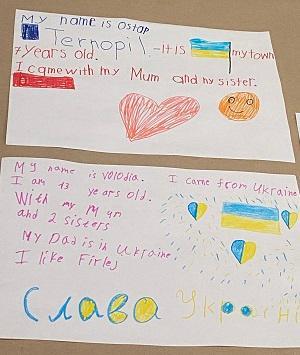 My name is Ostap
Ternopil. - It is my town
7 years old.
I came with my Mum and my sister.
My name is Volodia.
I am 13 years old.
With my Mum
and 2 sisters
My Dad is in Ukraine.
I like Firlej
I came from Ukraine
Слава Україні